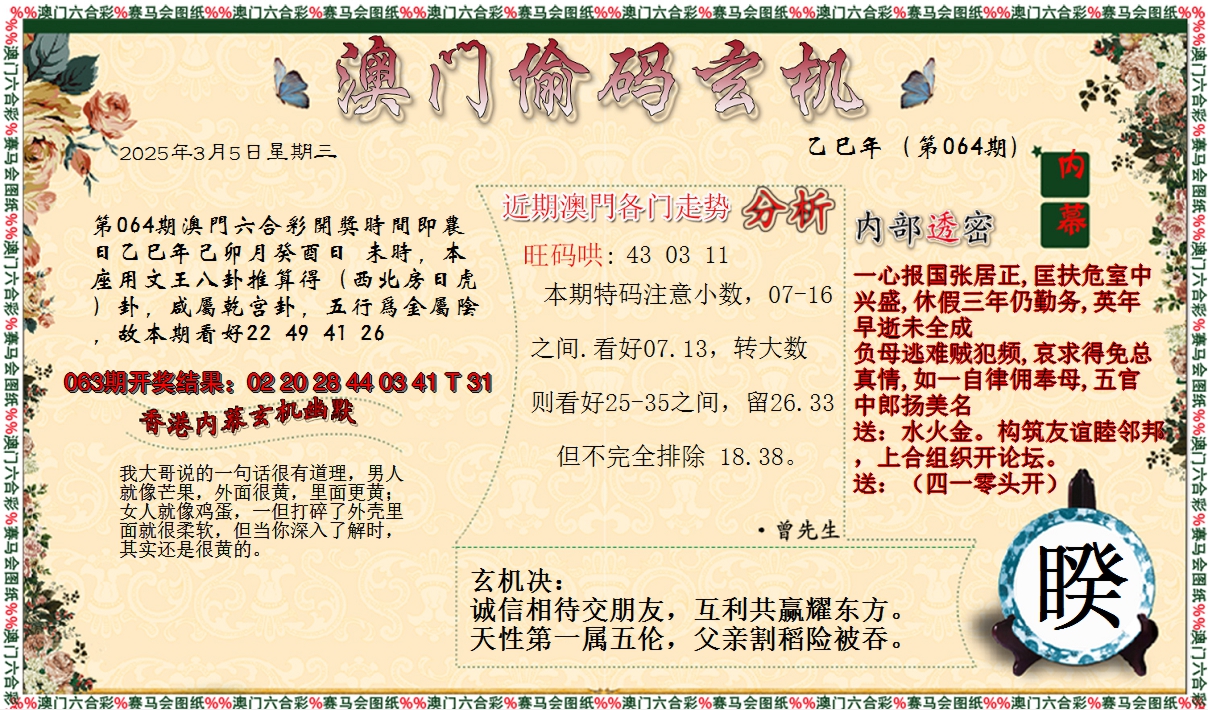 %%澳门六合彩%赛马会图纸%%澳门六合彩%赛马会图纸%%澳门六合彩%赛马会图纸%%澳门六合彩%赛马会图纸%%澳门六合彩%赛马会图纸%%澳门六合彩%赛马会图纸%%
澳门偷码玄机
2025年3月5日星期三
乙巳年（第064期）
第064期澳門六合彩開獎時間即農
日乙巳年己卯月癸酉日 未時，本
座用文王八卦推算得（西北房日虎
）卦，咸屬乾宫卦，五行爲金屬陰
，故本期看好22 49 41 26
063期开奖结果：02 20 28 44 03 41 T 31
香港内幕玄机幽默
我大哥说的一句话很有道理，男人
就像芒果，外面很黄，里面更黄；
女人就像鸡蛋，一但打碎了外壳里
面就很柔软，但当你深入了解时，
其实还是很黄的。
近期澳門各门走势 分析
旺码哄: 43 03 11
本期特码注意小数，07-16
之间.看好07.13，转大数
则看好25-35之间，留26.33
但不完全排除 18.38。
·曾先生
内幕
内部透密
一心报国张居正,匡扶危室中
兴盛,休假三年仍勤务,英年
早逝未全成
负母逃难贼犯频,哀求得免总
真情,如一自律佣奉母,五官
中郎扬美名
送：水火金。构筑友谊睦邻邦
，上合组织开论坛。
送：（四一零头开）
玄机决：
诚信相待交朋友，互利共赢耀东方。
天性第一属五伦，父亲割稻险被吞。
睽
%%澳门六合彩%赛马会图纸%%澳门六合彩%赛马会图纸%%澳门六合彩%赛马会图纸%%澳门六合彩%赛马会图纸%%澳门六合彩%赛马会图纸%%澳门六合彩%赛马会图纸%%